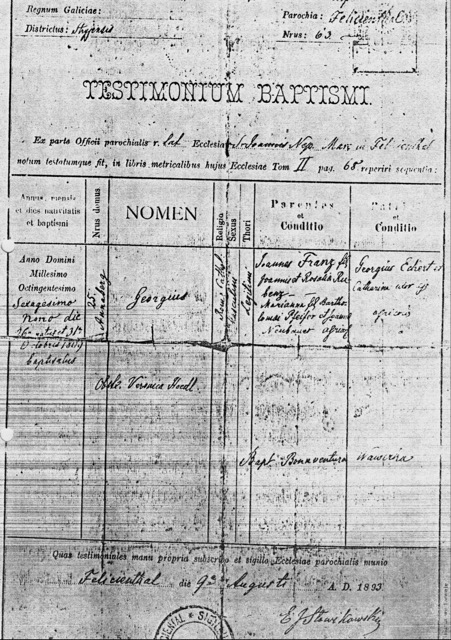 Regnum Galiciae:
Districtus: Stryjensis
Parochia: Felicienthal
Nrus: 63
TESTIMONIUM BAPTISMI.
Ex parte Officii parochialis r. Lat. Ecclesia S. Joannis Nep. Mart. in Felicienthal
notum testatumque fit, in libris metricalibus hujus Ecclesiae Tom II pag. 68 reperiri sequentia:
Annus, mensis et dies nativitatis et baptismi
Nrus domus
NOMEN
Religio
Sexus
Thori
Parentes et Conditio
Patrini et Conditio
Anno Domini
Millesimo
Octingentesimo
Sexagesimo
nono die
Octobris 1869
baptisatus
25.
Annaberg
Georgius
Rom. Cathol.
Masculinus
Legitimi
Joannes Franz fil.
Joannis et Rosalia
Marianna fil. Bartho
lomaei
Georgius Eckert et
Catharina uxor
agricolae
Obst. Veronica Hoedl
Bapt. Bonaventura Wawerna
Quas testimoniales manu propria subscribo et sigillo Ecclesiae parochialis munio
Felicienthal die 9na Augusti A. D. 1893